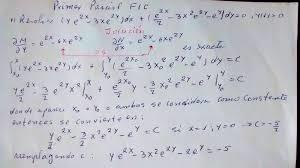 Primer Parcial F1C
1) Resolver (ye^{2x} - 3xe^{2y})dx + (½e^{2x} - 3x²e^{2y} - e^y)dy = 0, y(1) = 0
Solución
∂M/∂y = e^{2x} - 6xe^{2y} ∂N/∂x = e^{2x} - 6xe^{2y} es exacta
∫(ye^{2x} - 3xe^{2y})dx + ∫(½e^{2x} - 3x²e^{2y} - e^y)dy = C
y/2 e^{2x} - 3/2 x²e^{2y}
donde aparece x₀ = y₀ = ambos se consideran como constante
entonces se convierte en:
y/2 e^{2x} - 3/2 x²e^{2y} - e^y = C si x=1, y=0 → C = -5/2
reemplazando c: ye^{2x} - 3x²e^{2y} - 2e^y = -5